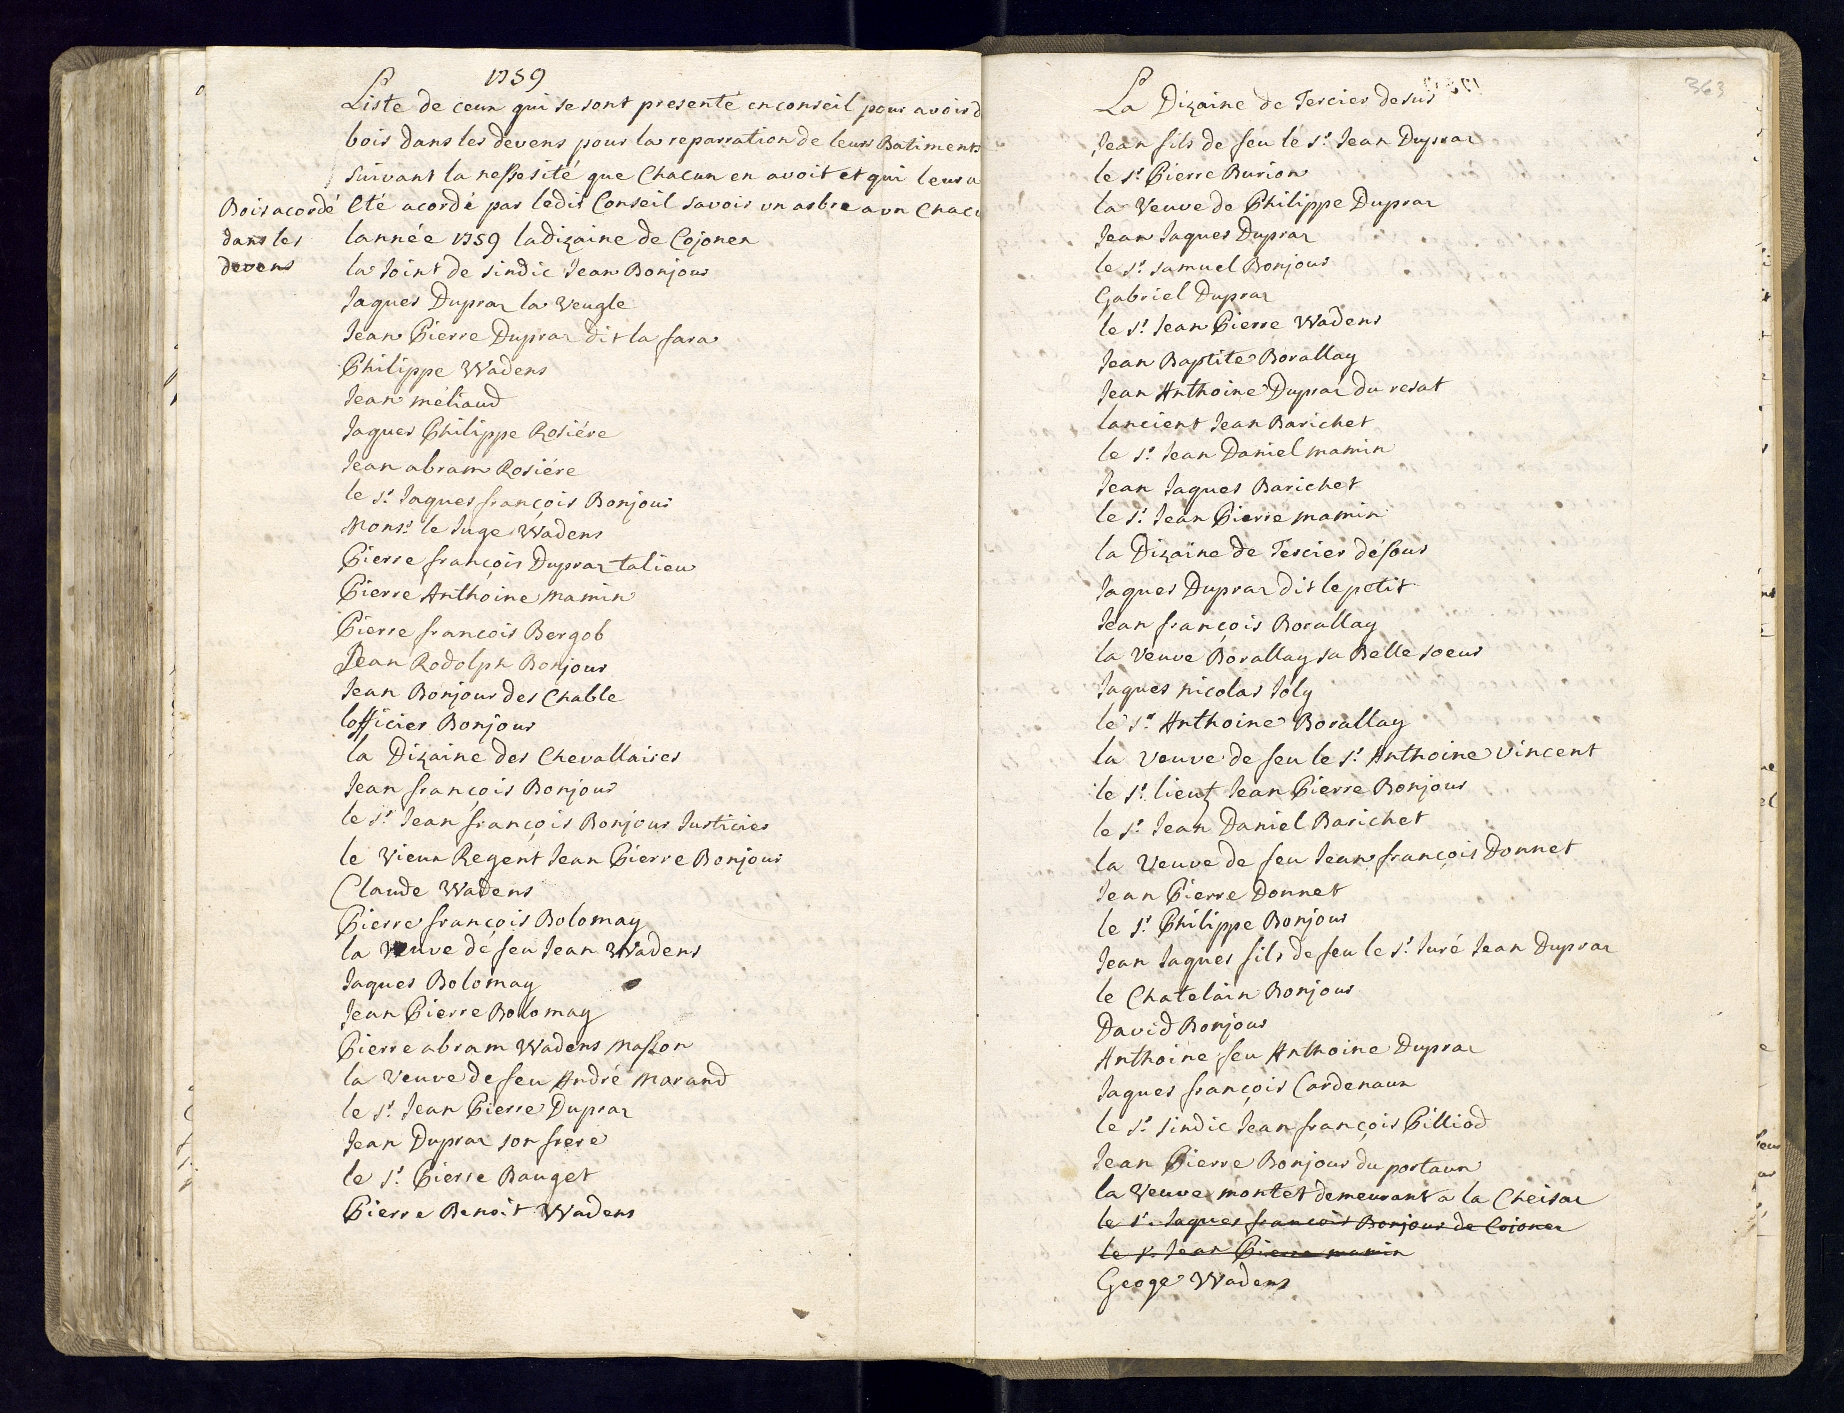 1759
Liste de ceux qui se sont presenté en conseil pour avoir d
bois dans les devens pour la reparration de leurs Batiments
suivant la nessesité que Chacun en avoit et qui leur a
Bois acordé
dans les
devens
Eté acordé par ledit Conseil savoir un arbre a un Chacu
lannée 1759 la dizaine de Cojonex
la Joint de sindic Jean Bonjour
Jaques Duprax la Veugle
Jean Pierre Duprax dit la sara
Philippe Wadens
Jean méliaud
Jaques Philippe Rosiére
Jean abram Rosiére
le Sr. Jaques françois Bonjour
Monsr. le Juge Wadens
Pierre françois Duprax talieu
Pierre Anthoine Mamin
Pierre francois Bergob
Jean Rodolph Bonjour
Jean Bonjour des Chable
lofficier Bonjour
la Dizaine des Chevallaires
Jean françois Bonjour
le Sr. Jean françois Bonjour Justicier
le Vieux Regent Jean Pierre Bonjour
Claude Wadens
Pierre françois Bolomay
la Veuve de feu Jean Wadens
Jaques Bolomay
Jean Pierre Bolomay
Pierre abram Wadens Masson
la Veuve de feu André Marand
le Sr. Jean Pierre Duprax
Jean Duprax son frere
le Sr. Pierre Bauget
Pierre Benoit Wadens
363
La Dizaine de Tercier desus
Jean fils de feu le Sr. Jean Duprax
le Sr. Pierre Burion
la Veuve de Philippe Duprax
Jean Jaques Duprax
le Sr. samuel Bonjour
Gabriel Duprax
le Sr. Jean Pierre Wadens
Jean Baptite Borallay
Jean Anthoine Duprax du resat
lancient Jean Barichet
le Sr. Jean Daniel mamin
Jean Jaques Barichet
le Sr. Jean Pierre mamin
la Dizaine de Tercier désous
Jaques Duprax dit le petit
Jean françois Borallay
la Veuve Borallay sa Belle soeur
Jaques nicolas Joly
le Sr. Anthoine Borallay
la Veuve de feu le Sr. Anthoine Vincent
le Sr. lieut Jean Pierre Bonjour
le Sr. Jean Daniel Barichet
la Veuve de feu Jean françois Donnet
Jean Pierre Donnet
le Sr. Philippe Bonjour
Jean Jaques fils de feu le Sr. Juré Jean Duprax
le Chatelain Bonjour
David Bonjour
Anthoine feu Anthoine Duprax
Jaques françois Cardenaux
le Sr. sindic Jean françois Pilliod
Jean Pierre Bonjour du portaux
la Veuve montet demeurant a la Cheisax
le Sr. Jaques francois Bonjour de Cojonex
le Sr. Jean Pierre mamin
Geoge Wadens